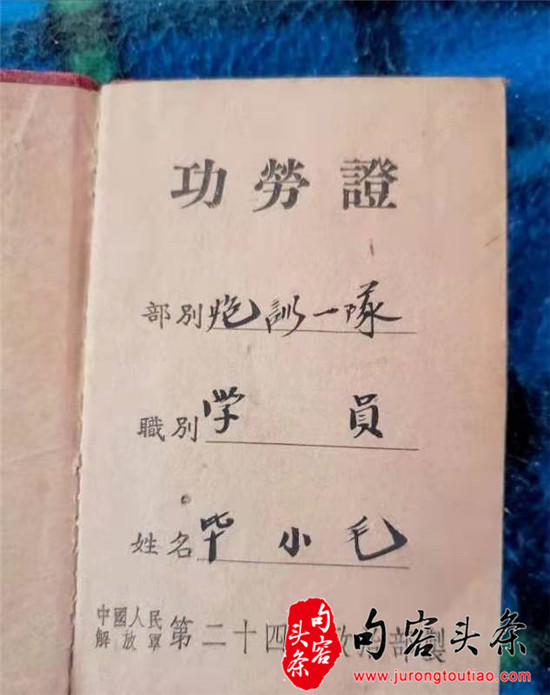 功勞證
部別 炮訓一隊
職別 学員
姓名 毕小毛
中國人民
解放軍 第二十四 政治部製
句容头条
句容头条
www.jurongtoutiao.com